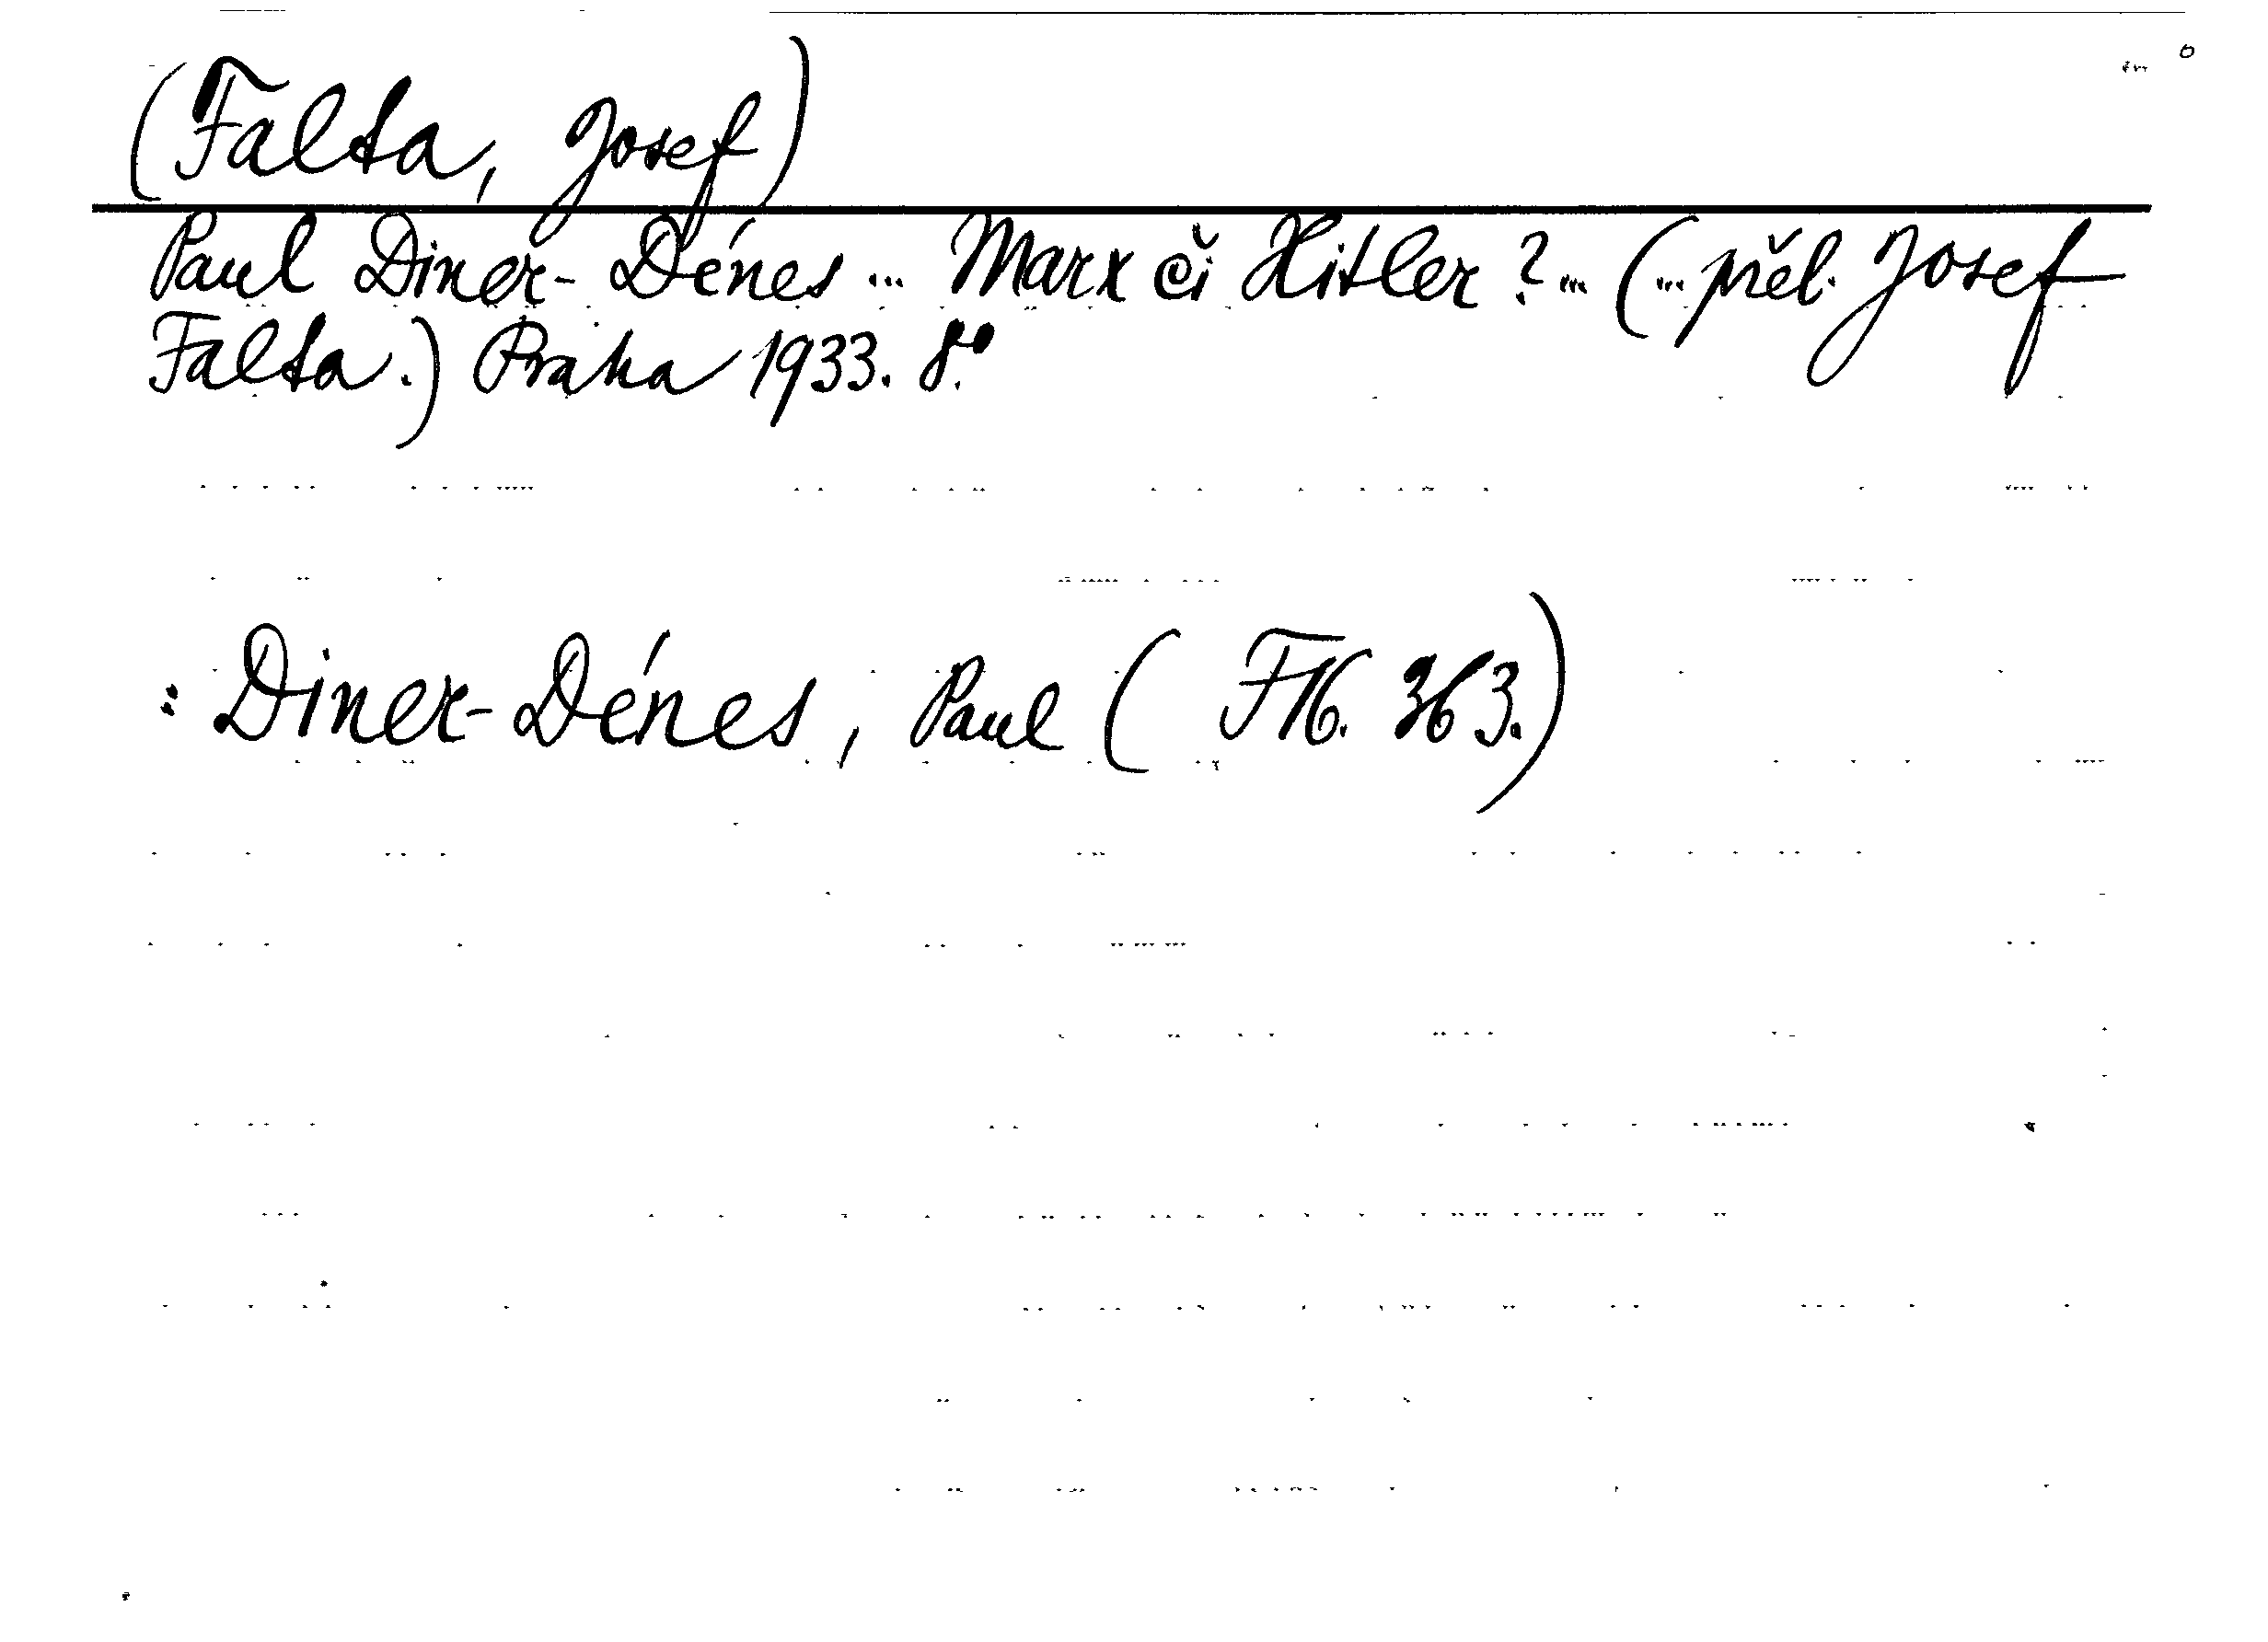 (Falta, Josef)
Paul Diner-Dénes ... Marx či Hitler? ... (... přel. Josef
Falta.) Praha 1933. 8°.
: Diner-Dénes, Paul ( FK. 363.)